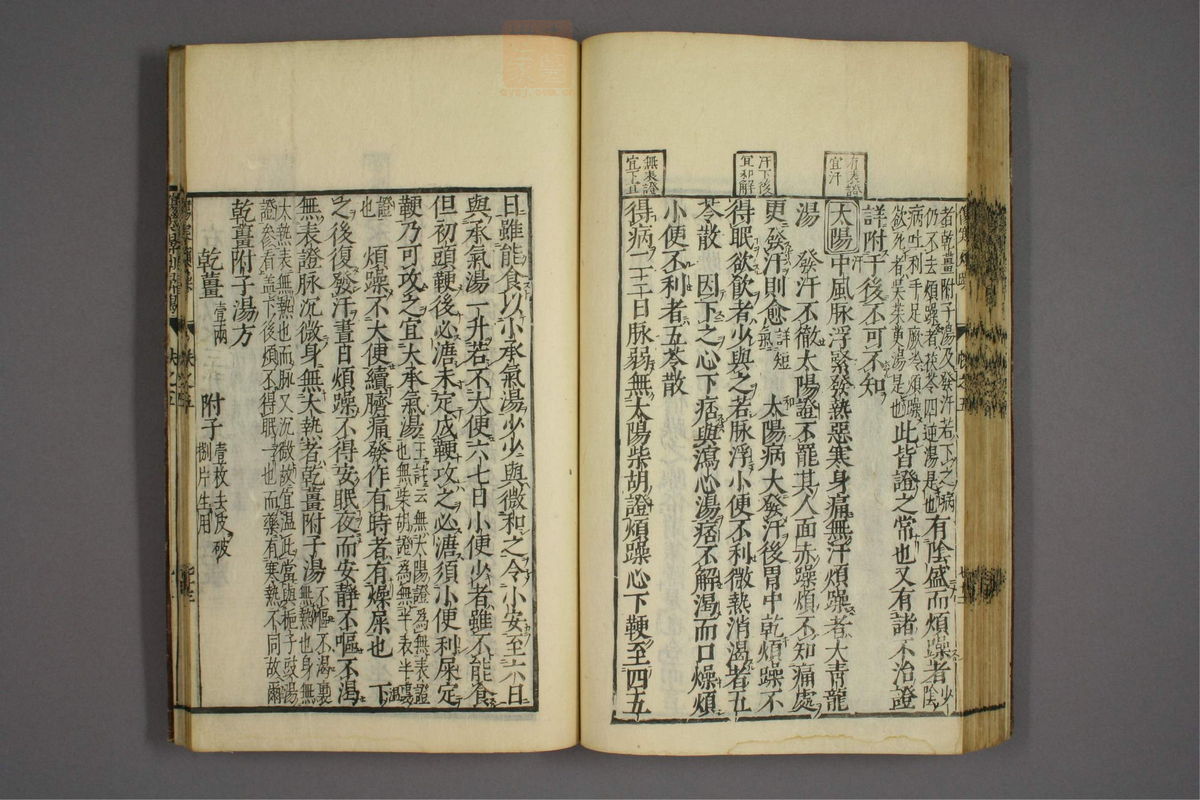 者乾薑附子湯及發汗若下之病
仍不去煩躁者茯苓四逆湯是也
有陰盛而煩躁者少陰
病吐利手足厥冷煩躁
欲死者吳茱萸湯是也
此皆證之常也又有諸不治證
詳附于後不可不知
有表證
宜汗
太陽中風脉浮緊發熱惡寒身痛無汗煩躁者大青龍
湯　發汗不徹太陽證不罷其人面赤躁煩不知痛處
更發汗則愈
詳短氣
汗下後
宜和解
太陽病大發汗後胃中乾煩躁不
得眠欲飲者少少與之若脉浮小便不利微熱消渴者五
苓散　因下之心下痞與瀉心湯痞不解渴而口燥煩
小便不利者五苓散
無表證
宜下
得病二三日脉弱無太陽柴胡證煩躁心下鞕至四五
日雖能食以小承氣湯少少與微和之令小安至六日
與承氣湯一升若不大便六七日小便少者雖不能食
但初頭鞕後必溏未定成鞕攻之必溏須小便利屎定
鞕乃可攻之宜大承氣湯
王註云無太陽證爲無表證
也無柴胡證爲無半表半裏
證
也
煩躁不大便繞臍痛發作有時者有燥屎也
溫
下
之後復發汗晝日煩躁不得安眠夜而安靜不嘔不渴
無表證脉沉微身無大熱者乾薑附子湯
不嘔不渴裏
無熱也身無
大熱表無熱也而脉又沉微故宜温此當與梔子豉湯
證參看盖下後煩不得眠一也而藥有寒熱不同故爾
乾薑附子湯方
乾薑壹兩　附子壹枚去皮破
捌片生用